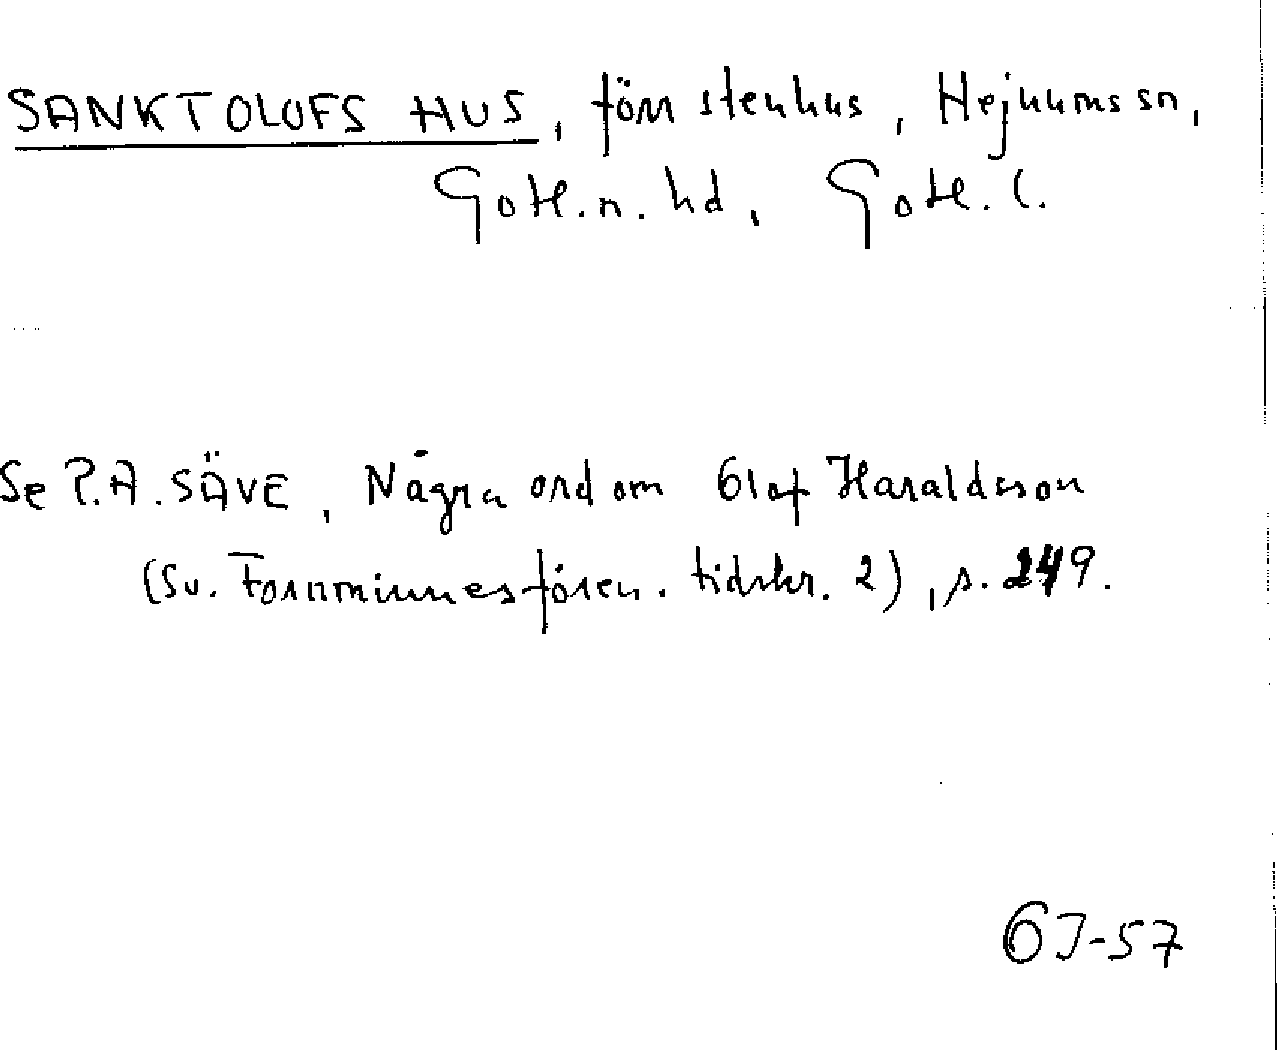 SANKT OLOFS HUS, förr stenhus, Hejnums sn,
Gotl. n. hd, Gotl. l.
Se P.A. SÄVE, Några ord om Olaf Haraldsson
(Sv. Fornminnesfören. tidskr. 2), s. 249.
GJ-57